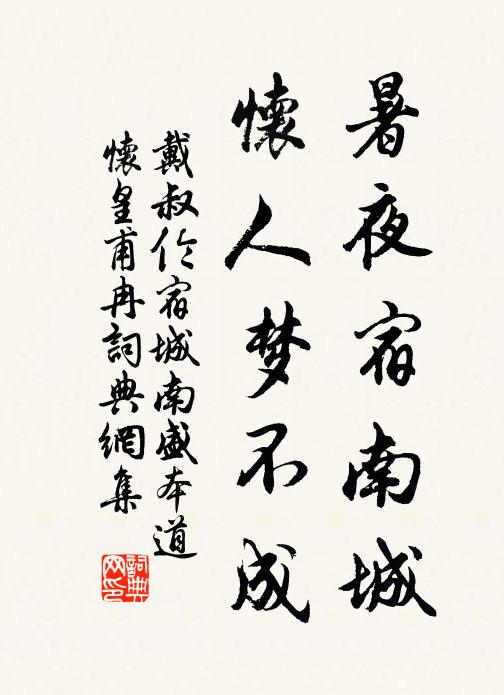 暑夜宿南城
懷人梦不成
戴叔伦宿城南盛本道
懷皇甫冉詞典網集
詞典网印